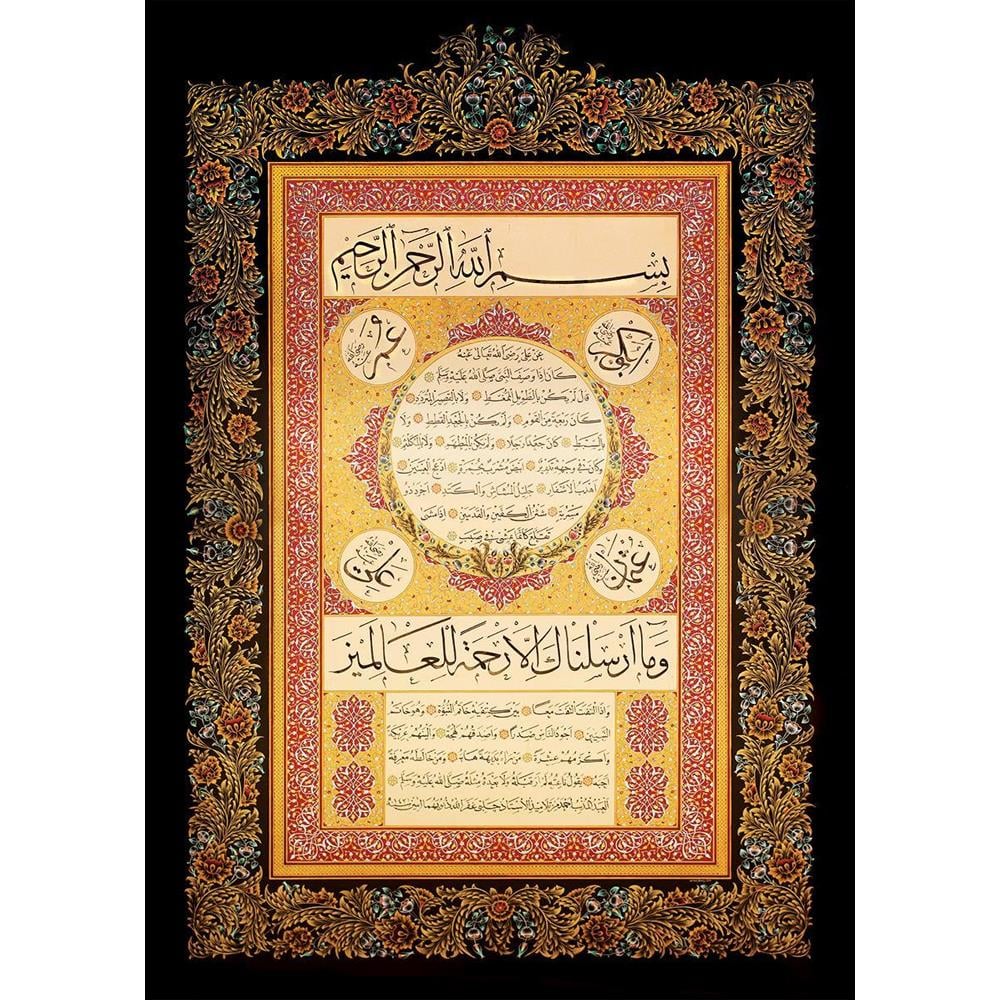 بسم الله الرحمن الرحيم
ابو بكر
عمر
عن علي رضي الله تعالى عنه
كان اذا وصف النبي صلى الله عليه وسلم
قال لم يكن بالطويل الممغط ولا بالقصير المتردد
كان ربعة من القوم ولم يكن بالجعد القطط ولا
بالسبط كان جعدا رجلا ولم يكن بالمطهم ولا بالمكلثم
وكان في وجهه تدوير ابيض مشرب بحمرة ادعج العينين
اهدب الاشفار جليل المشاش والكتد اجرد ذو
مسربة شثن الكفين والقدمين اذا مشى
تقلع كانما يمشي في صبب
عثمان
علي
وما ارسلناك الا رحمة للعالمين
واذا التفت التفت معا بين كتفيه خاتم النبوة وهو خاتم
النبيين اجود الناس صدرا واصدقهم لهجة والينهم عريكة
واكرمهم عشرة من رآه بديهة هابه ومن خالطه معرفة
احبه يقول ناعته لم ار قبله ولا بعده مثله صلى الله عليه وسلم